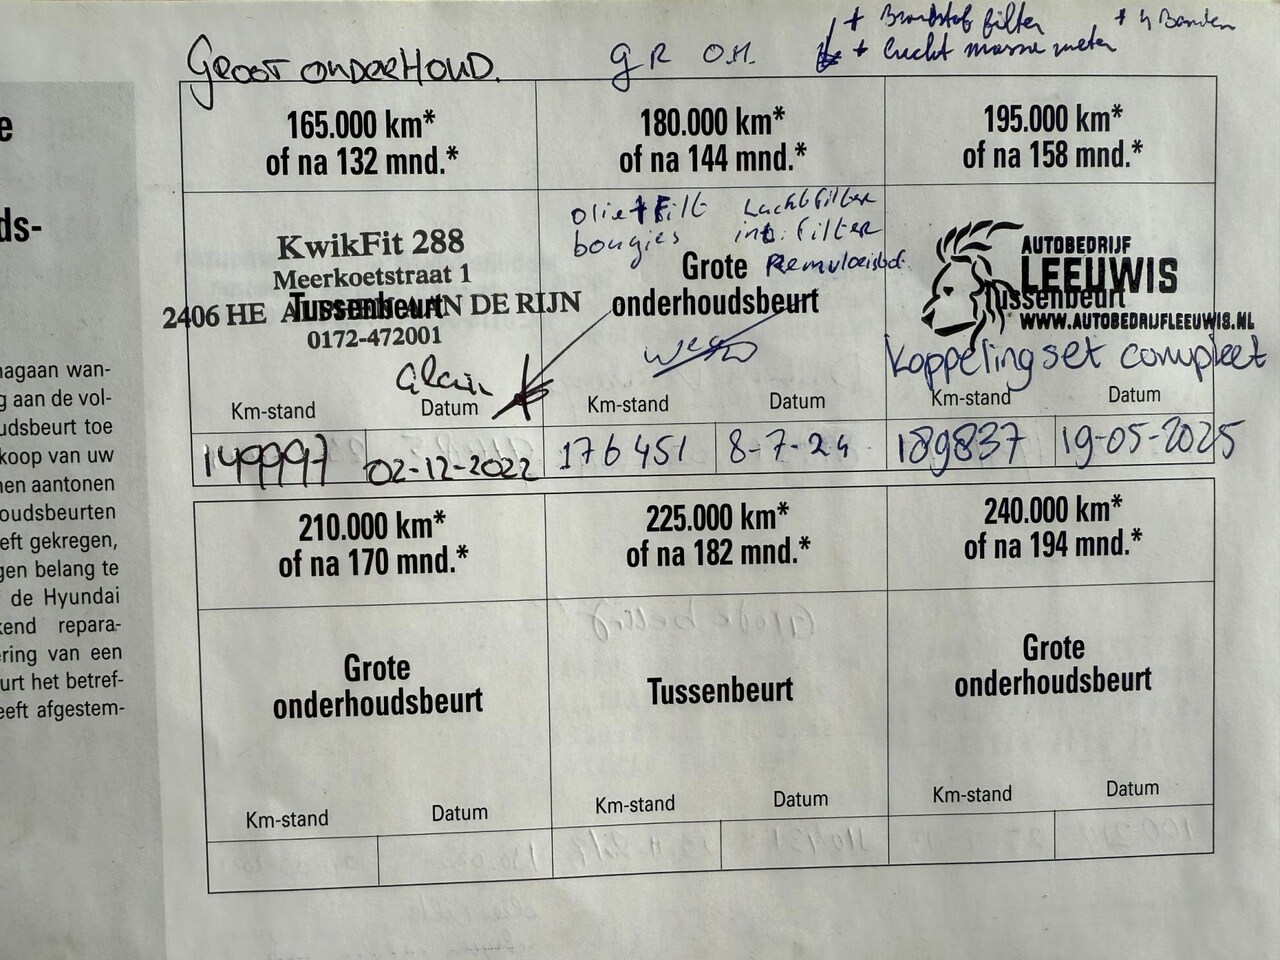 + Brandstof filter
+ 4 Banden
+ lucht massa meter
GROOT ONDERHOUD.
GR O.H.
165.000 km*
of na 132 mnd.*
KwikFit 288
Meerkoetstraat 1
Tussenbeurt
2406 HE ALPHEN AAN DE RIJN
0172-472001
Km-stand
Datum
149997
02-12-2022
180.000 km*
of na 144 mnd.*
olie+filt
Luchtfilter
bougies
int. filter
Remvloeistof.
Grote
onderhoudsbeurt
Km-stand
Datum
176451
8-7-24
195.000 km*
of na 158 mnd.*
AUTOBEDRIJF
LEEUWIS
Tussenbeurt
WWW.AUTOBEDRIJFLEEUWIS.NL
Koppelingset compleet
Km-stand
Datum
189837
19-05-2025
210.000 km*
of na 170 mnd.*
Grote
onderhoudsbeurt
Km-stand
Datum
225.000 km*
of na 182 mnd.*
Tussenbeurt
Km-stand
Datum
240.000 km*
of na 194 mnd.*
Grote
onderhoudsbeurt
Km-stand
Datum
e
ds-
nagaan wan-
g aan de vol-
udsbeurt toe
koop van uw
nen aantonen
oudsbeurten
eft gekregen,
gen belang te
de Hyundai
kend repara-
ering van een
urt het betref-
eeft afgestem-